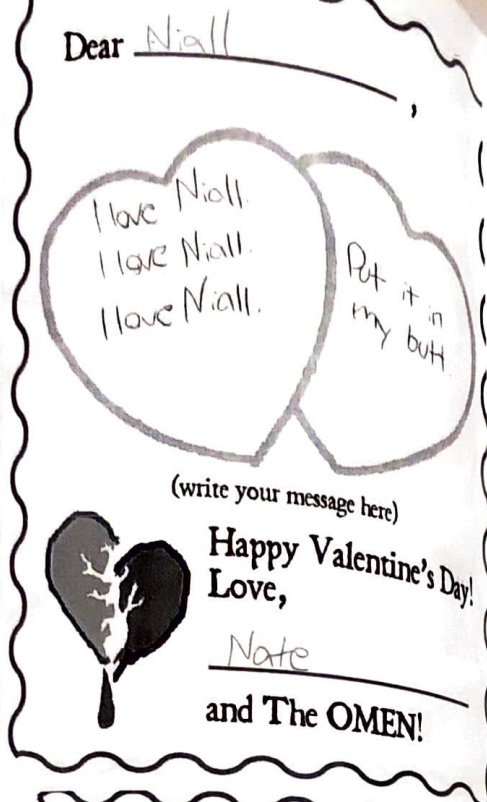 Dear Niall,
I love Niall.
I love Niall.
I love Niall.
Put it in
my butt.
(write your message here)
Happy Valentine's Day!
Love,
Nate
and The OMEN!